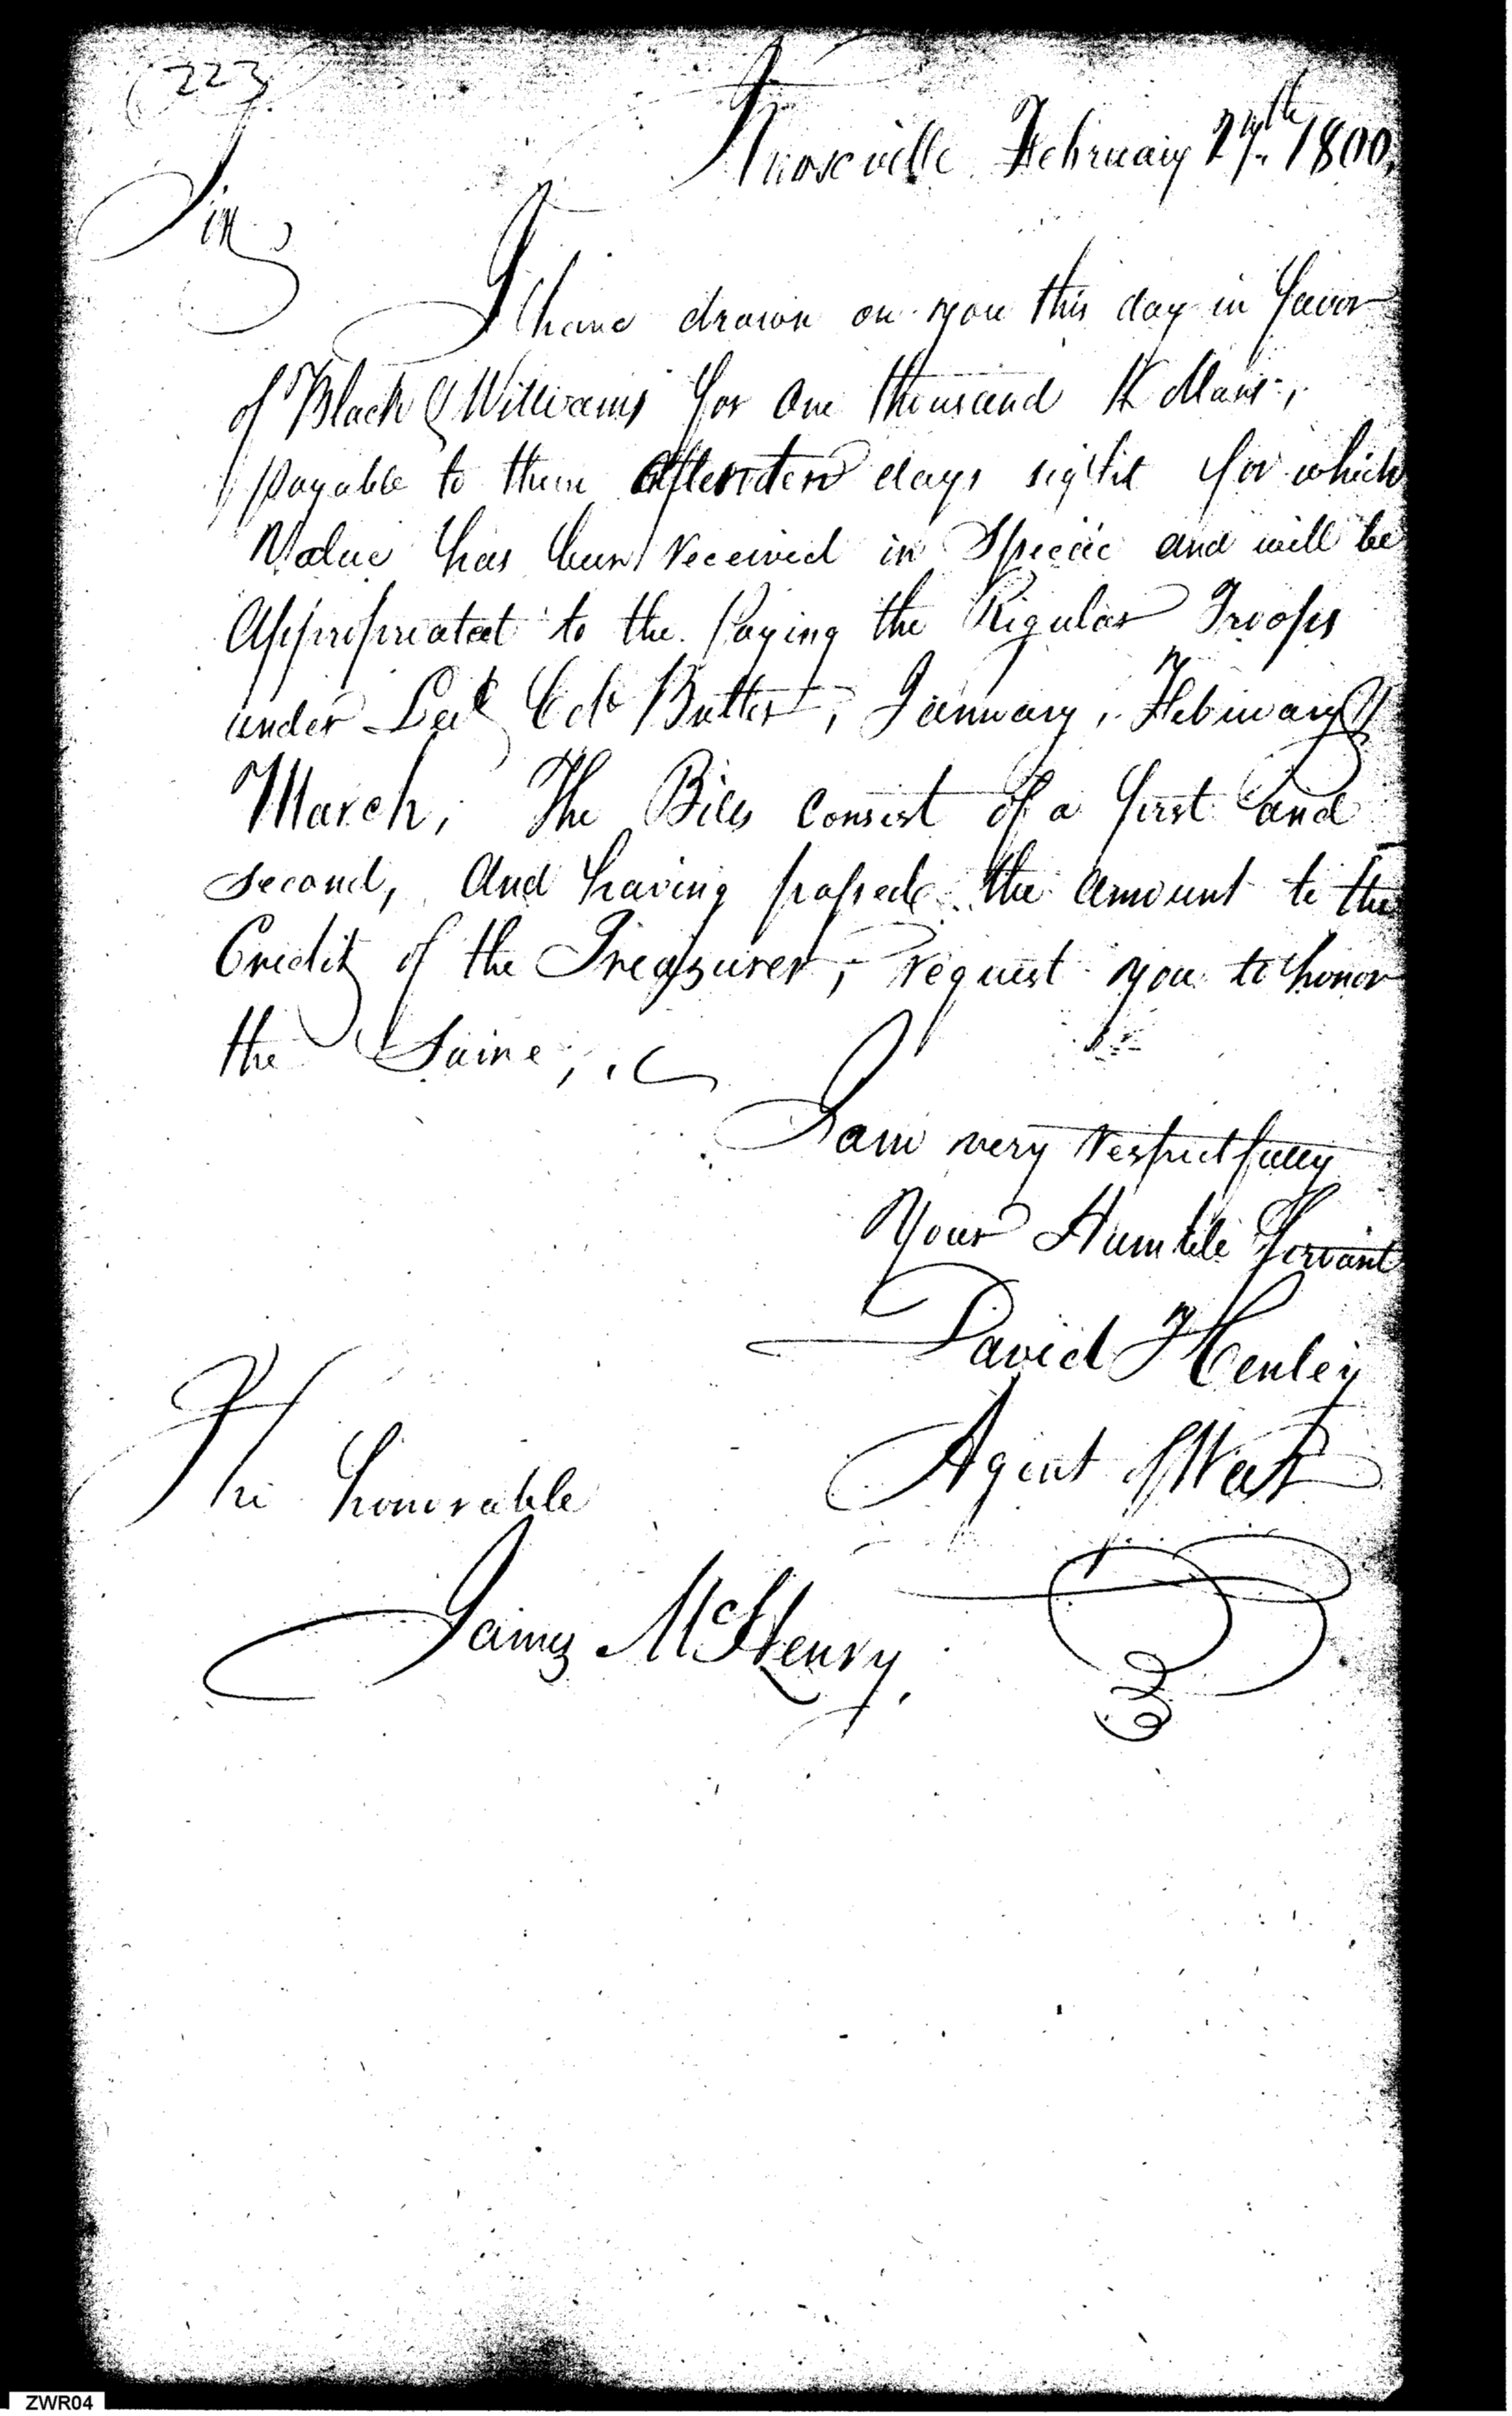 223
Knoxville February 27th. 1800.
Sir,
I have drawn on you this day in favor
of Black & Williams for One thousand Dollars,
payable to them days sight for which
Value has been received in Specie and will be
Appropriated to the paying the Regular Troops
under Lut Colo Butler, January, February &
March, The Bills Consist of a first and
second, And having passed the amount to the
Credit of the Treasurer, request you to honor
the Same,
I am very respectfully
Your Humble Servant
David Henley
Agent of War
The honorable
James McHenry.
ZWR04